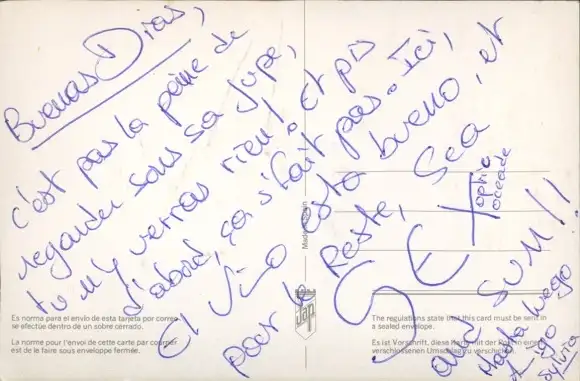 Buenas Dias,
c'est pas la peine de
regarder sous sa jupe,
tu n'y verras rien! et pis
d'abord, ça s'fait pas. Ici,
el vino esta bueno, et
pour le reste, Sea
SEX
and SUN!!
Sophie
oceade
Hasta luego
Sylvia
Made in Spain
Es norma para el envío de esta tarjeta por correo
se efectúe dentro de un sobre cerrado.
La norme pour l'envoi de cette carte par courrier
est de le faire sous enveloppe fermée.
The regulations state that this card must be sent in
a sealed envelope.
Es ist Vorschrift, diese Karte mit der Post in einem
verschlossenen Umschlag zu verschicken.